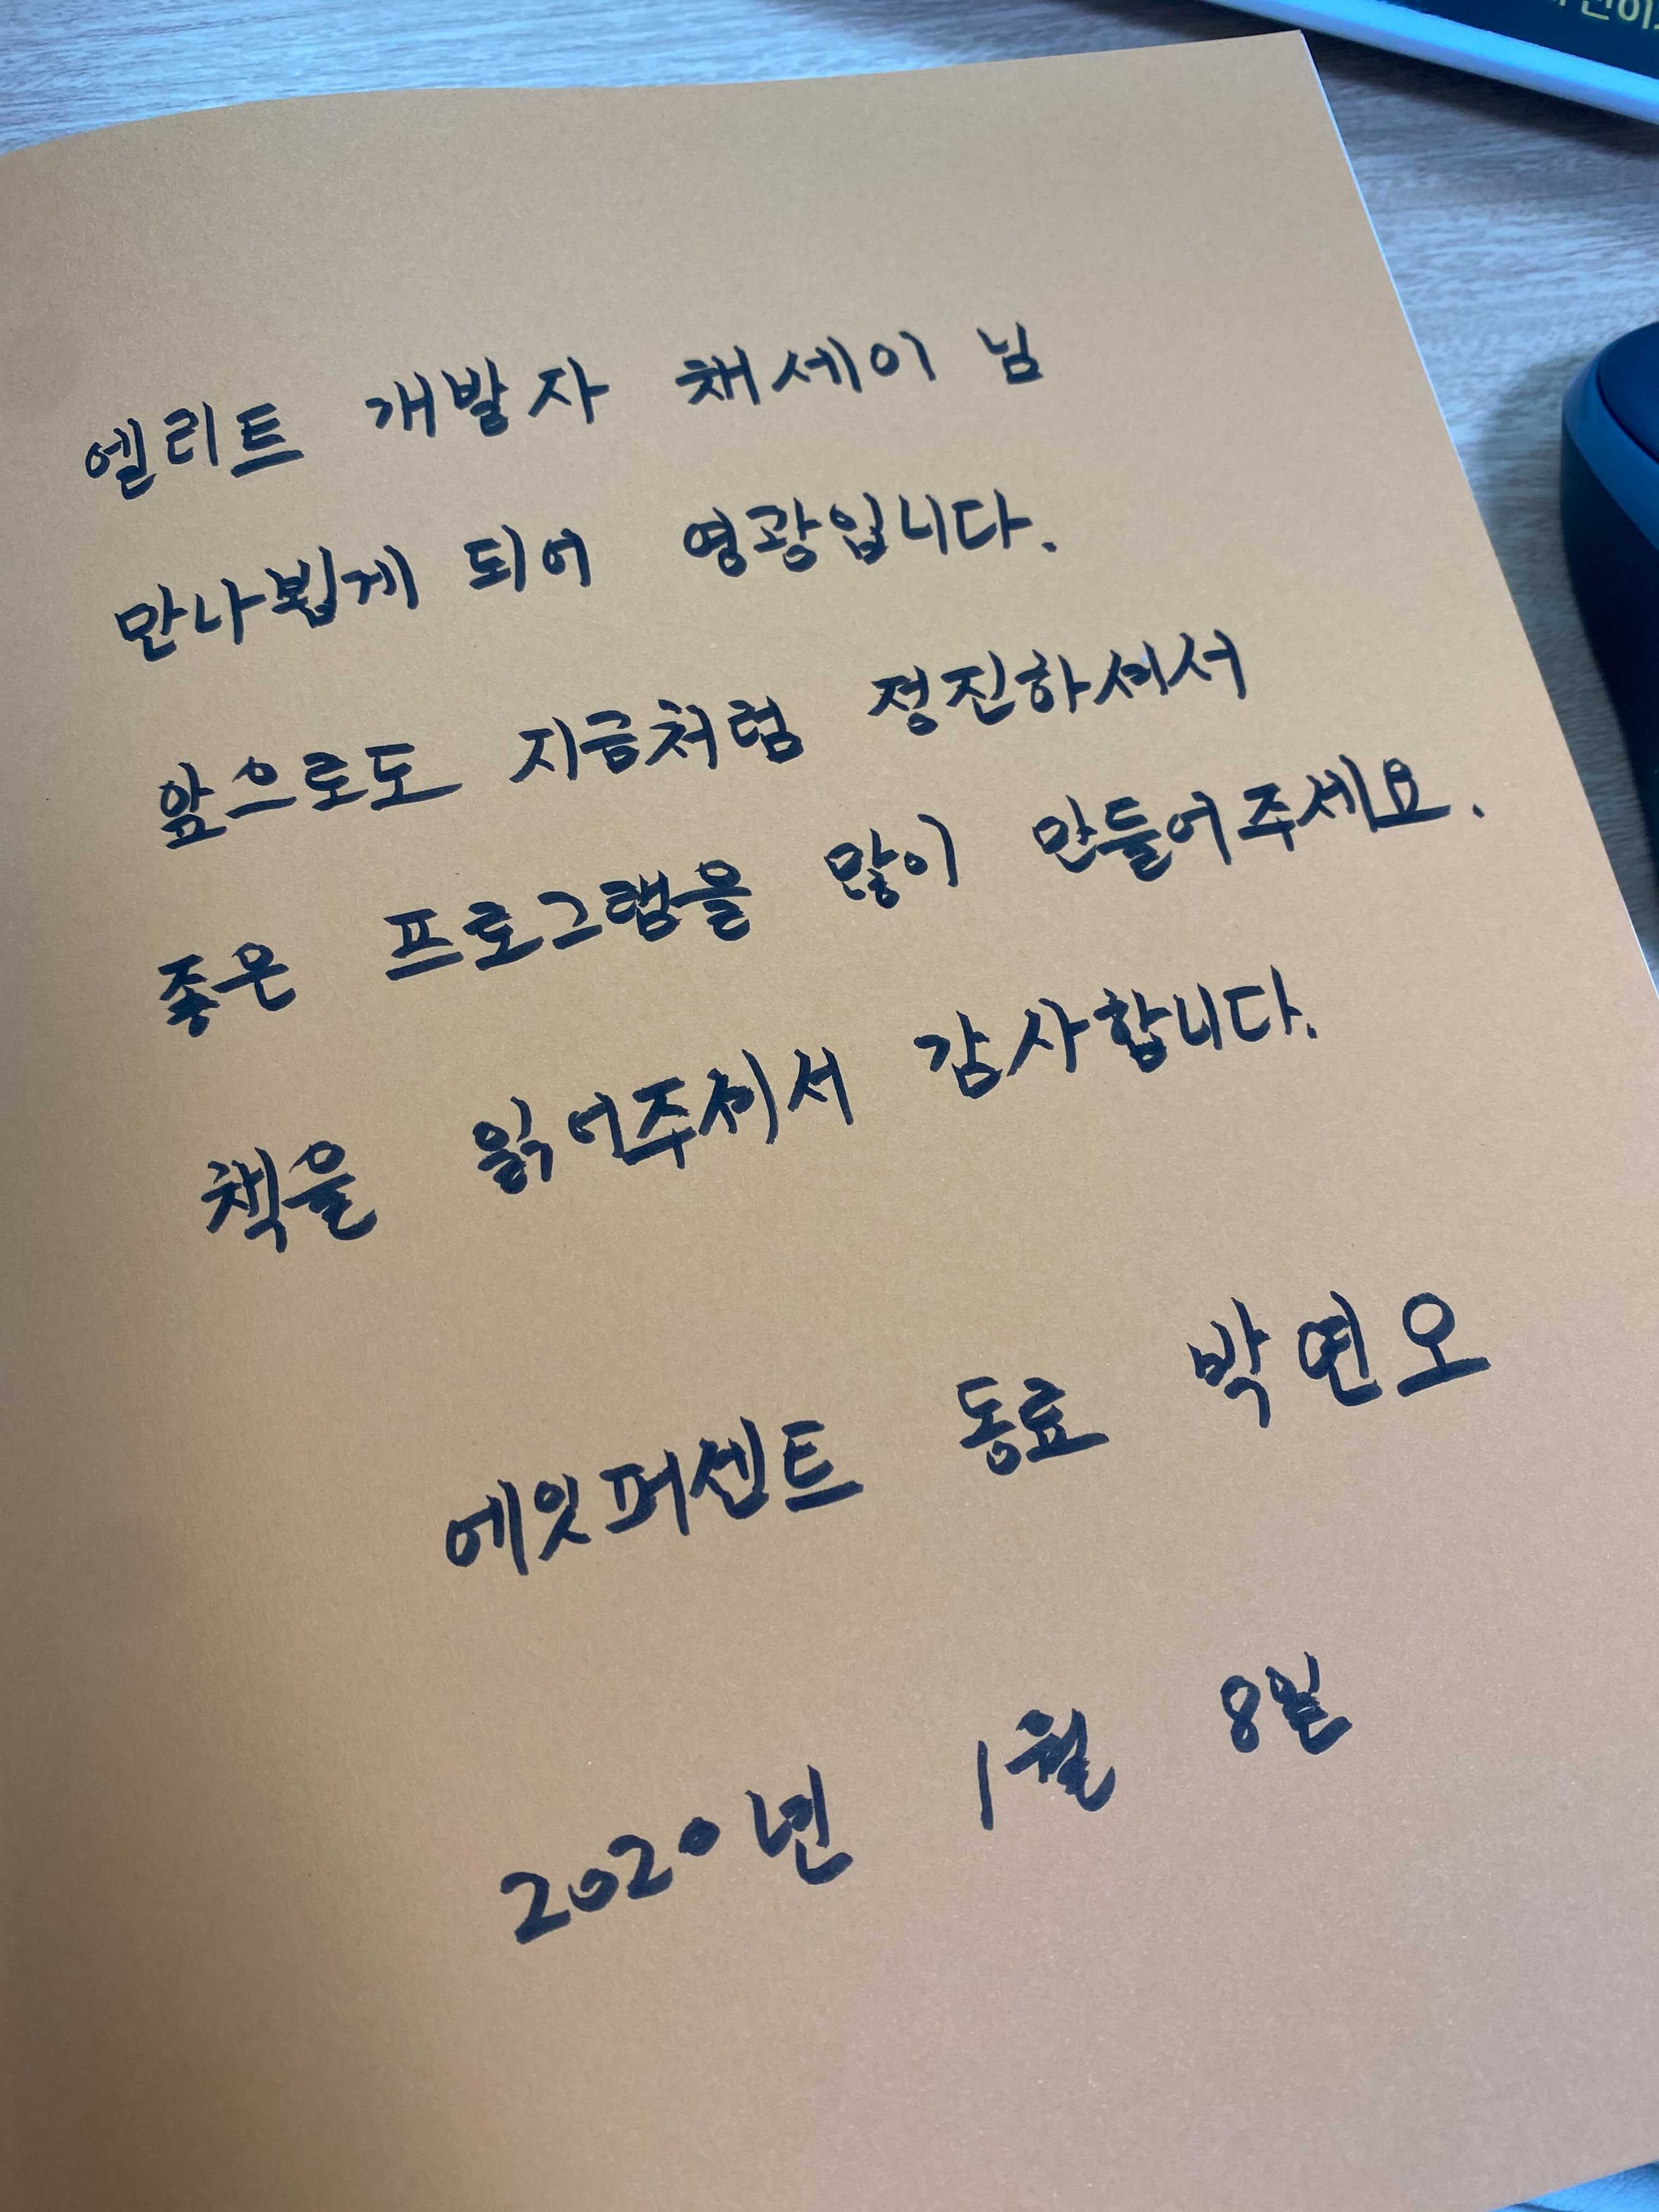 엘리트 개발자 채세이 님
만나뵙게 되어 영광입니다.
앞으로도 지금처럼 정진하셔서
좋은 프로그램을 많이 만들어주세요.
책을 읽어주셔서 감사합니다.
에잇퍼센트 동료 박연오
2020년 1월 8일